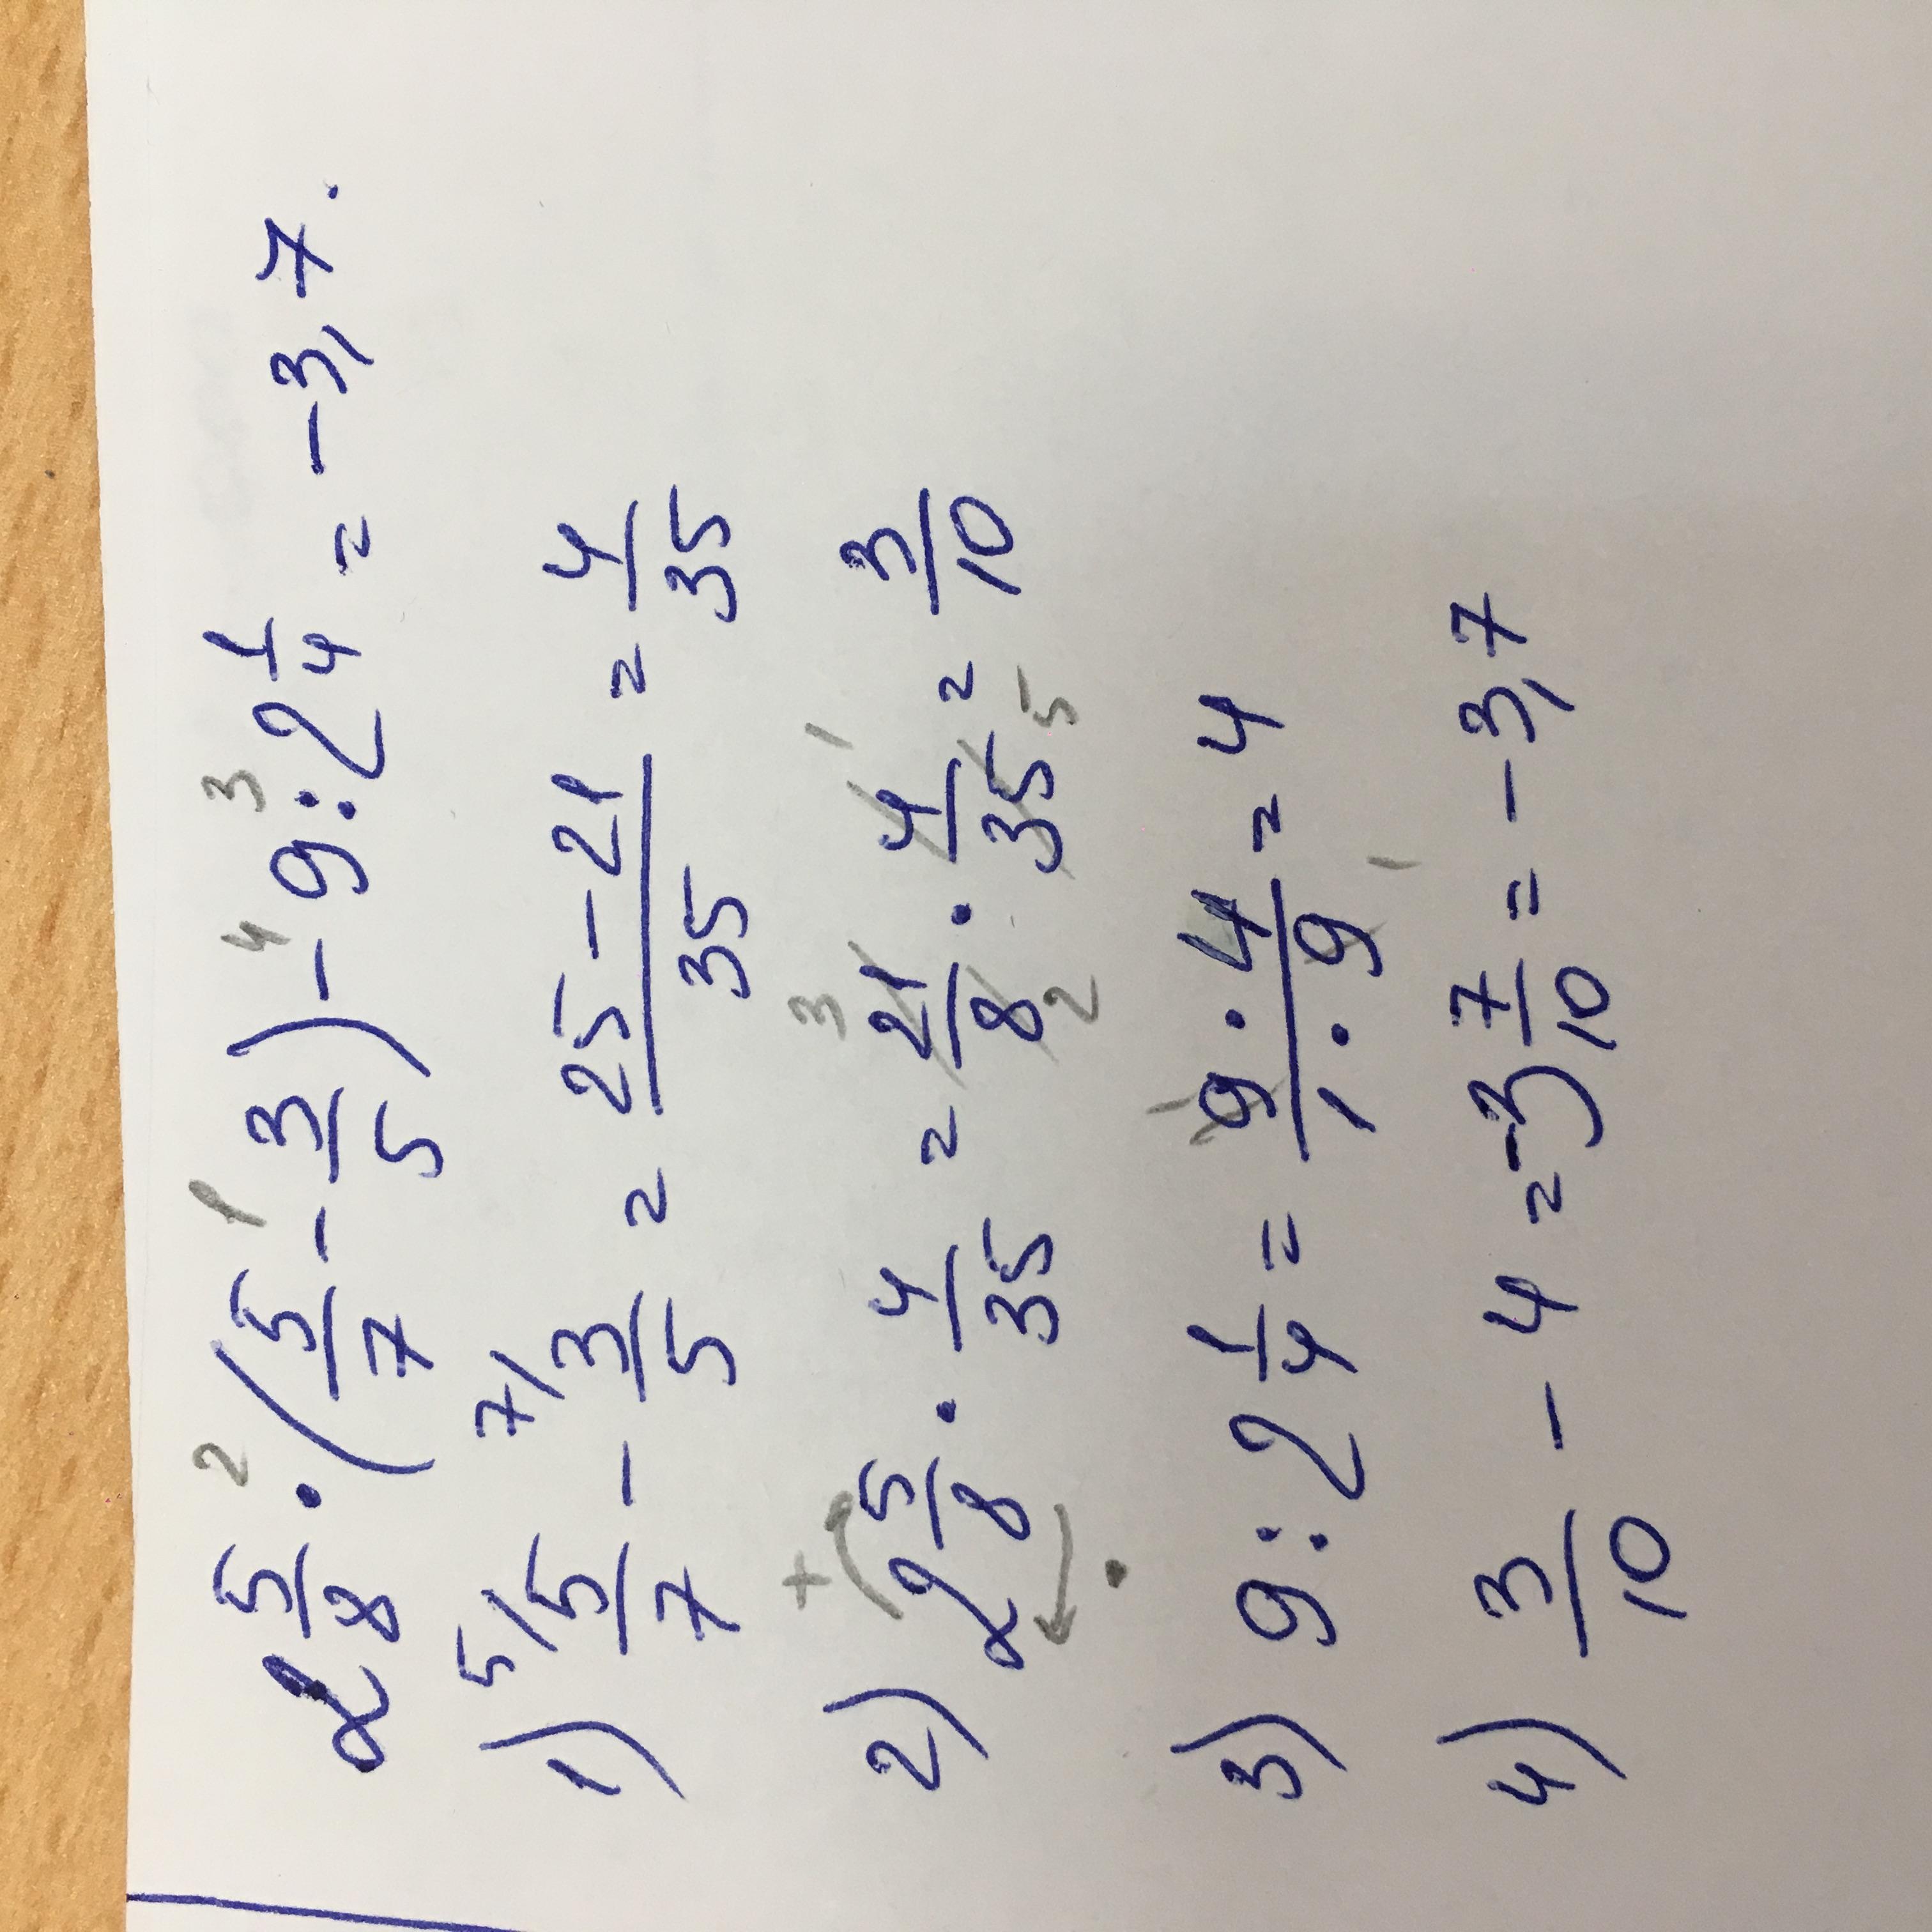 2 5/8 · (5/7 - 3/5) - 9 : 2 1/4 = -3,7.
1) 5/7 - 3/5 = (25 - 21)/35 = 4/35
2) 2 5/8 · 4/35 = 21/8 · 4/35 = 3/10
3) 9 : 2 1/4 = (9 · 4)/(1 · 9) = 4
4) 3/10 - 4 = -3 7/10 = -3,7